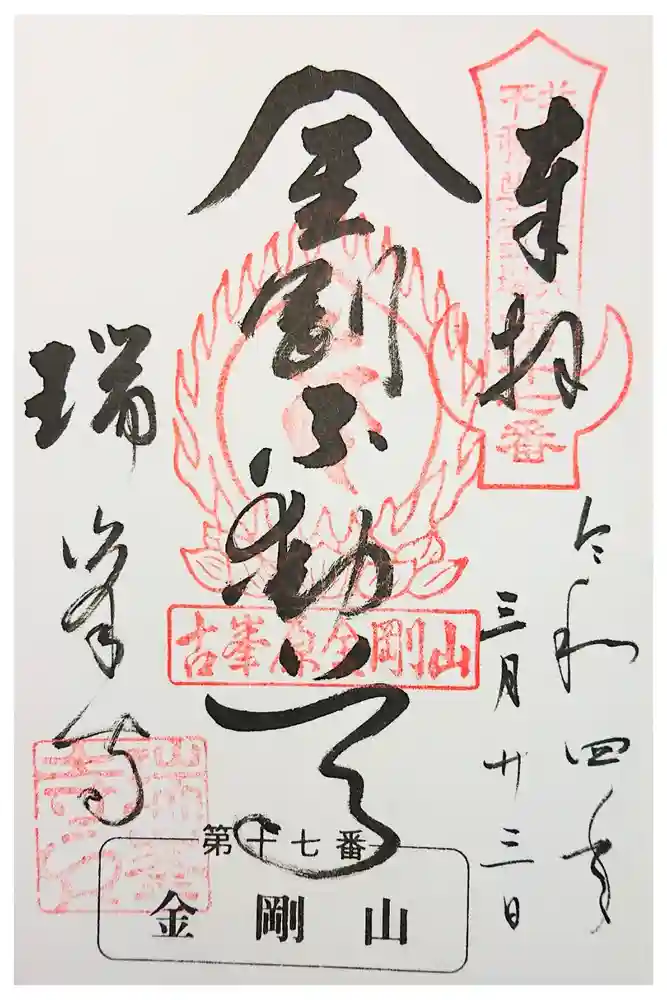 奉拝
令和四年
三月廿三日
金剛不動尊
瑞峯寺
古峯原金剛山
第十七番
金剛山